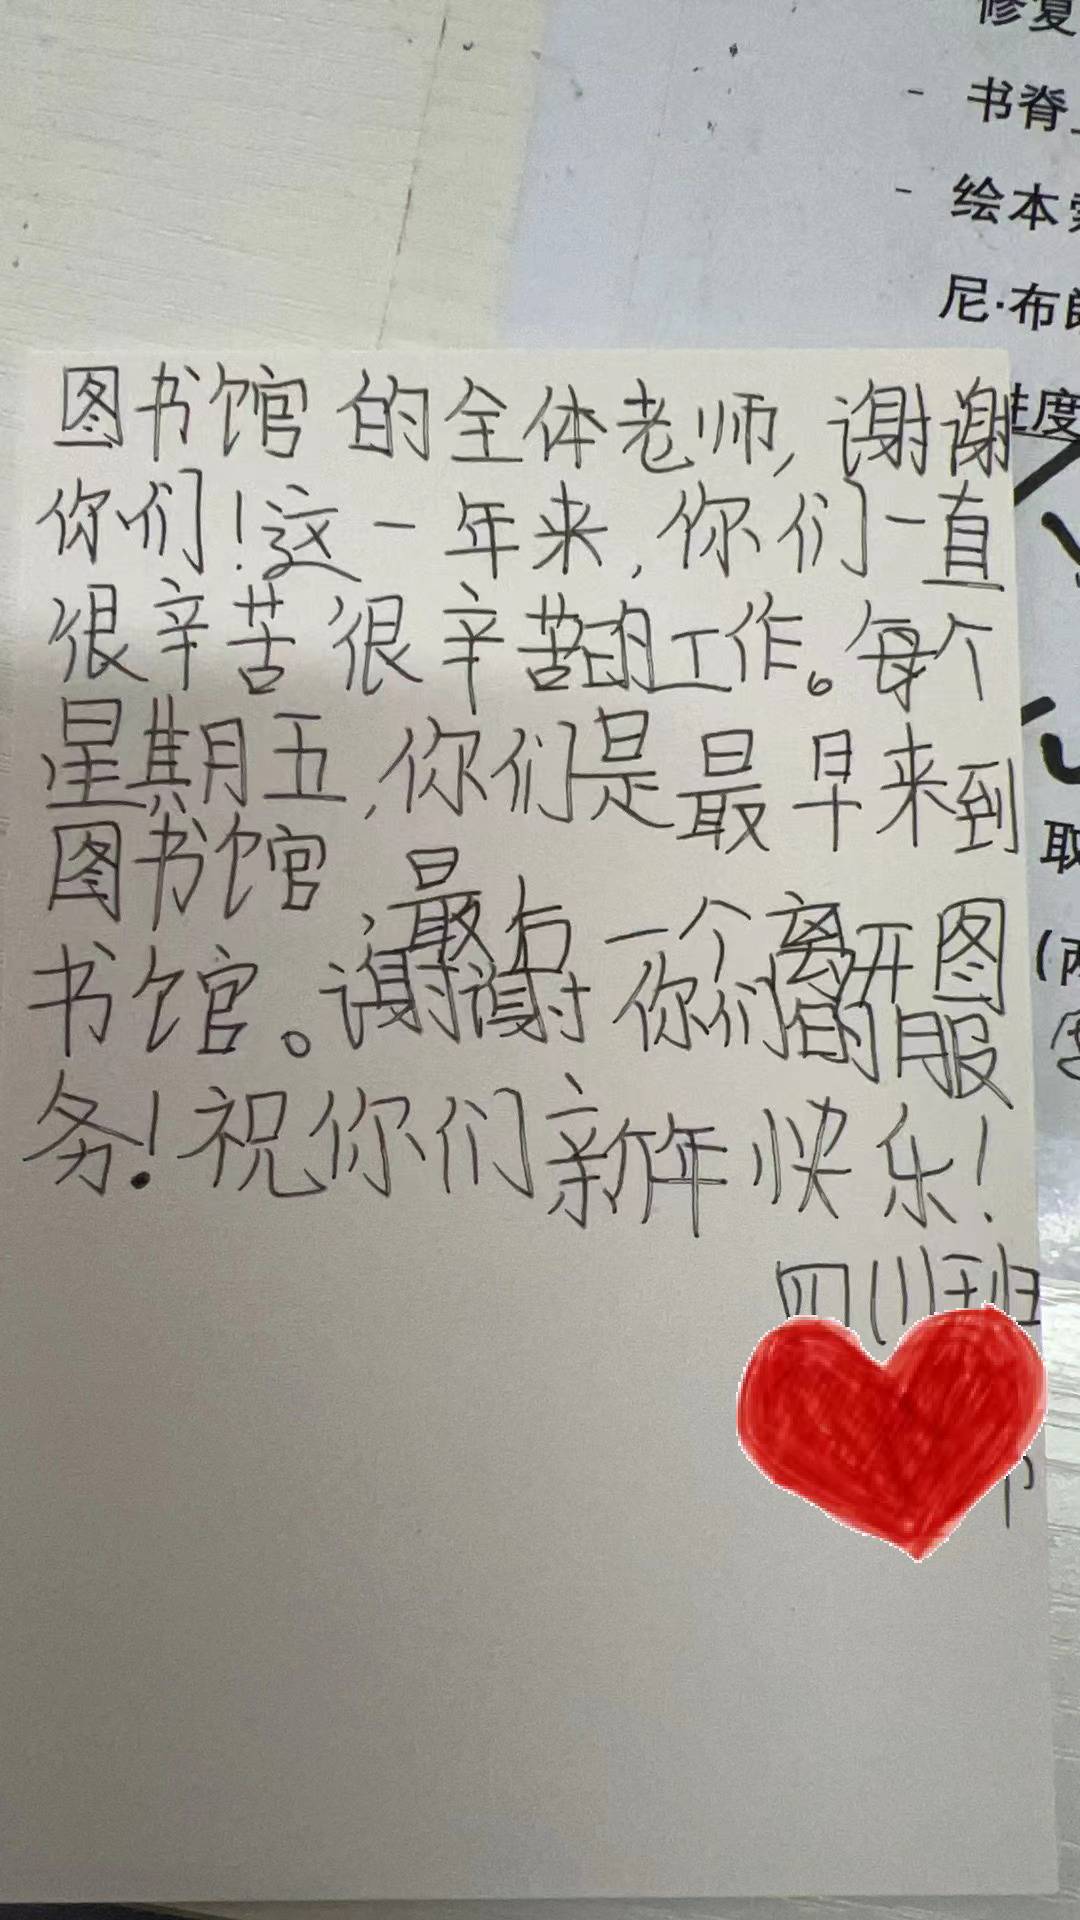 修复
- 书脊
- 绘本
尼·布
进度
图书馆的全体老师,谢谢
你们!这一年来,你们一直
很辛苦很辛苦的工作。每个
星期五,你们是最早来到
图书馆,最后一个离开图
书馆。谢谢你们的服
务!祝你们新年快乐!
四(1)班
取